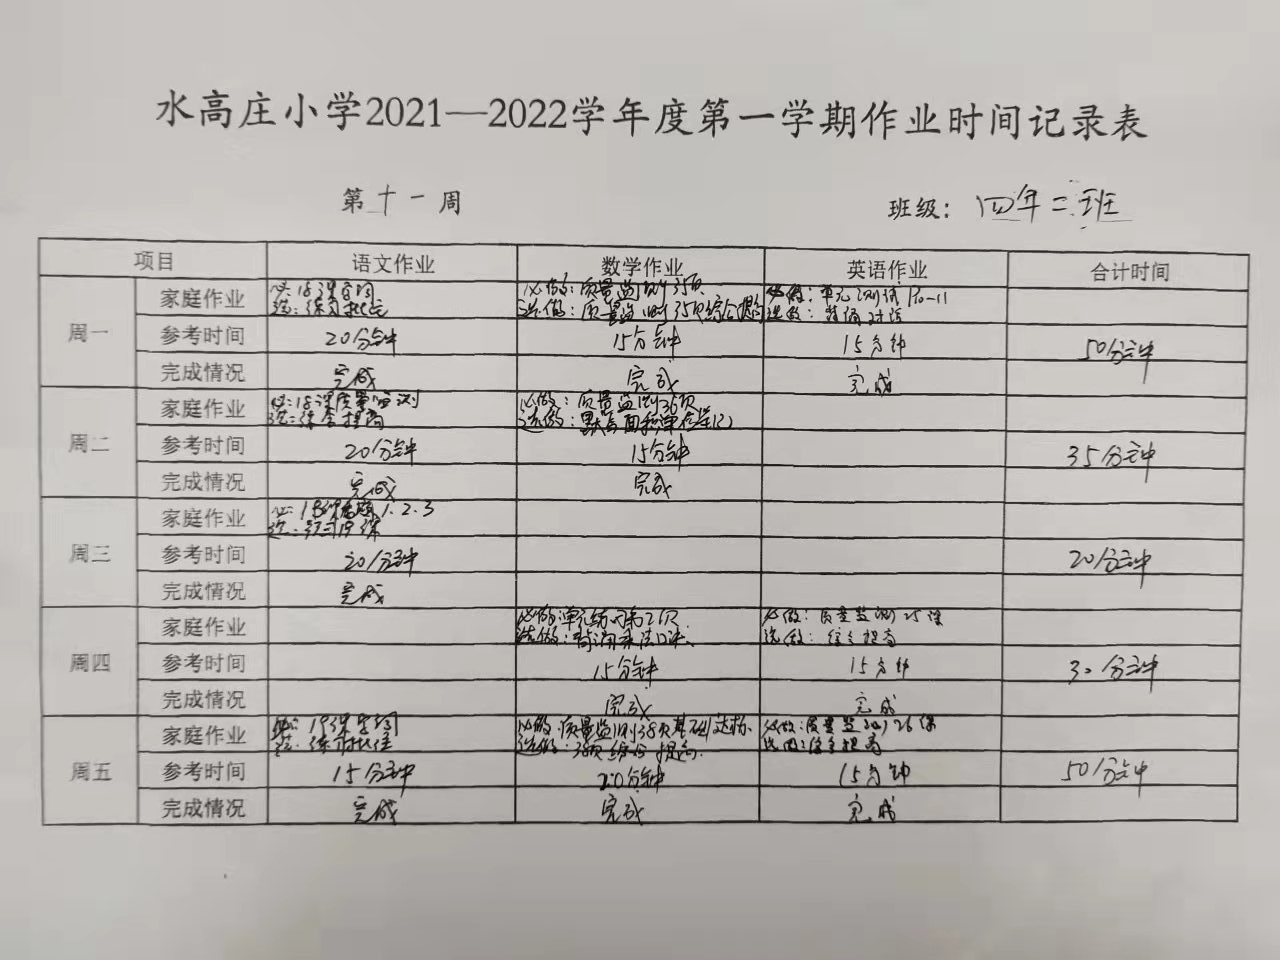 水高庄小学2021—2022学年度第一学期作业时间记录表
第十一周
班级：四年二班
项目 语文作业 数学作业 英语作业 合计时间
周一
家庭作业
必：18课
选：练习
必做：质量监测35页
选做：质量监测35页综合提高
必做：单元测试P10-11
选做：背诵对话
参考时间 20分钟 15分钟 15分钟 50分钟
完成情况 完成 完成 完成
周二
家庭作业
必：18课质量监测
选：综合提高
必做：质量监测36页
选做：默写面积单位
参考时间 20分钟 15分钟 35分钟
完成情况 完成 完成
周三
家庭作业
必：1.2.3
选：预习19课
参考时间 20分钟 20分钟
完成情况 完成
周四
家庭作业
必做：单元练习第2页
选做：背诵乘法口诀
必做：质量监测25课
选做：综合提高
参考时间 15分钟 15分钟 30分钟
完成情况 完成 完成
周五
家庭作业
必：19课
选：练习
必做：质量监测38页基础达标
选做：38页综合提高
必做：质量监测26课
选做：综合提高
参考时间 15分钟 20分钟 15分钟 50分钟
完成情况 完成 完成 完成